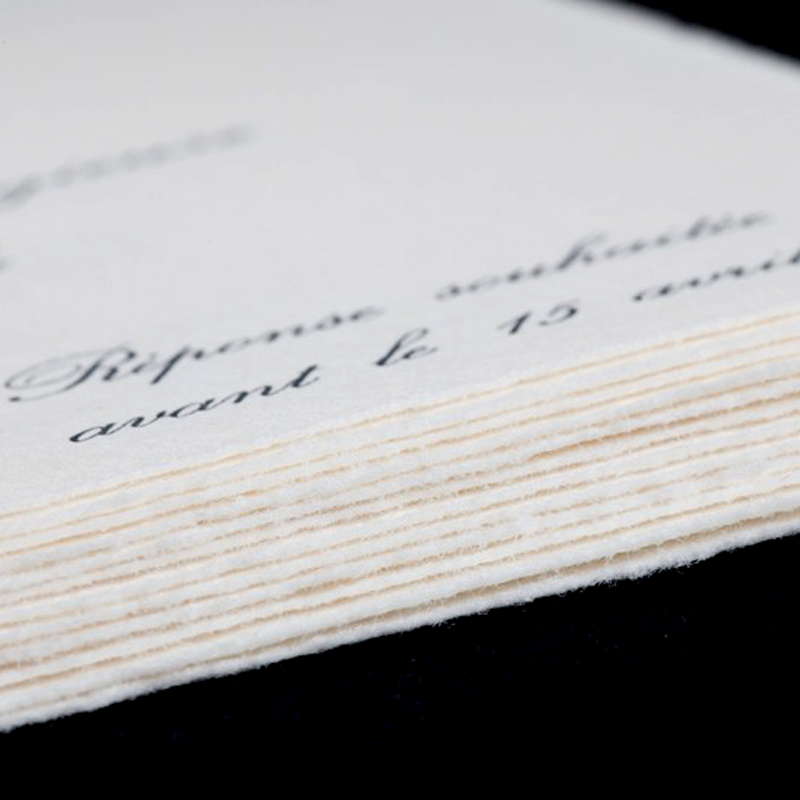 Réponse souhaitée
avant le 15 avril